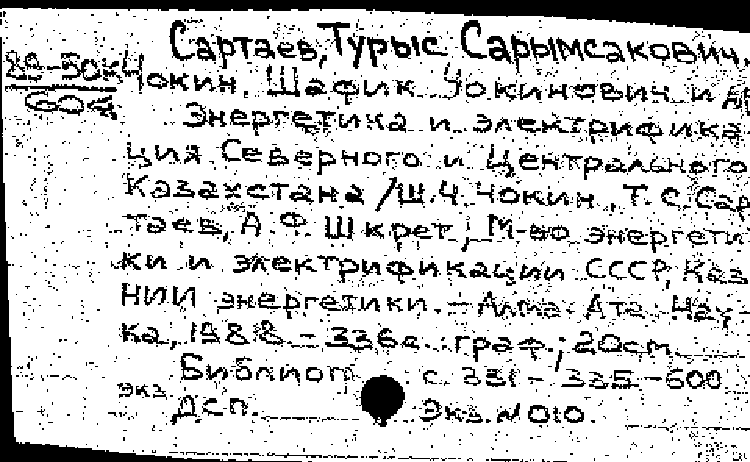 Сартаев, Турыс Сарымсакович.
89-50к
604
Чокин, Шафик Чокинович и др
Энергетика и электрифика
ция Северного и Центрального
Казахстана /Ш.Ч. Чокин, Т.С. Сар
таев, А.Ф. Шкрет; М-во энергети
ки и электрификации СССР, Каз
НИИ энергетики. - Алма-Ата: Нау-
ка, 1988 - 336с.: граф.; 20см
Библиогр с. 331-335 - 600
экз.
ДСП. Экз. №010.